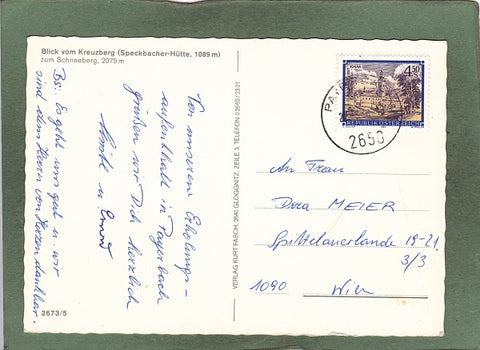 Blick vom Kreuzberg (Speckbacher-Hütte, 1089 m)
zum Schneeberg, 2075 m
Von unserem Erholungs-
aufenthalt in Payerbach
grüßen wir Dich herzlich
u.
Bs: Es geht uns gut u. wir
sind dem Herrn von Herzen dankbar.
2673/5
VERLAG KURT FASCH, 2640 GLOGGNITZ, ZEILE 3, TELEFON
4.50
REPUBLIK ÖSTERREICH
2650
An Frau
Dora MEIER
Spittelauerlände 19-21
3/3
1090 Wien